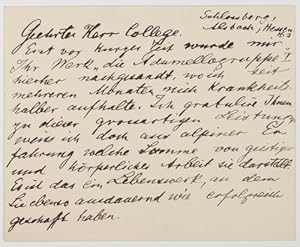 Schlossberg,
Alsbach, Hessen
Geehrter Herr College.
Erst vor kurzer Zeit wurde mir
Ihr Werk, die Adamellogruppe I
hierher nachgesandt, wo ich seit
mehreren Monaten mich Krankheits
halber aufhalte. Ich gratulire Ihnen
zu dieser grossartigen Leistung,
weiss ich doch aus alpiner Er
fahrung welche Summe von geistiger
und körperlicher Arbeit sie darstellt.
Es ist das ein Lebenswerk, an dem
Sie ebenso ausdauernd wie erfolgreich
geschafft haben.